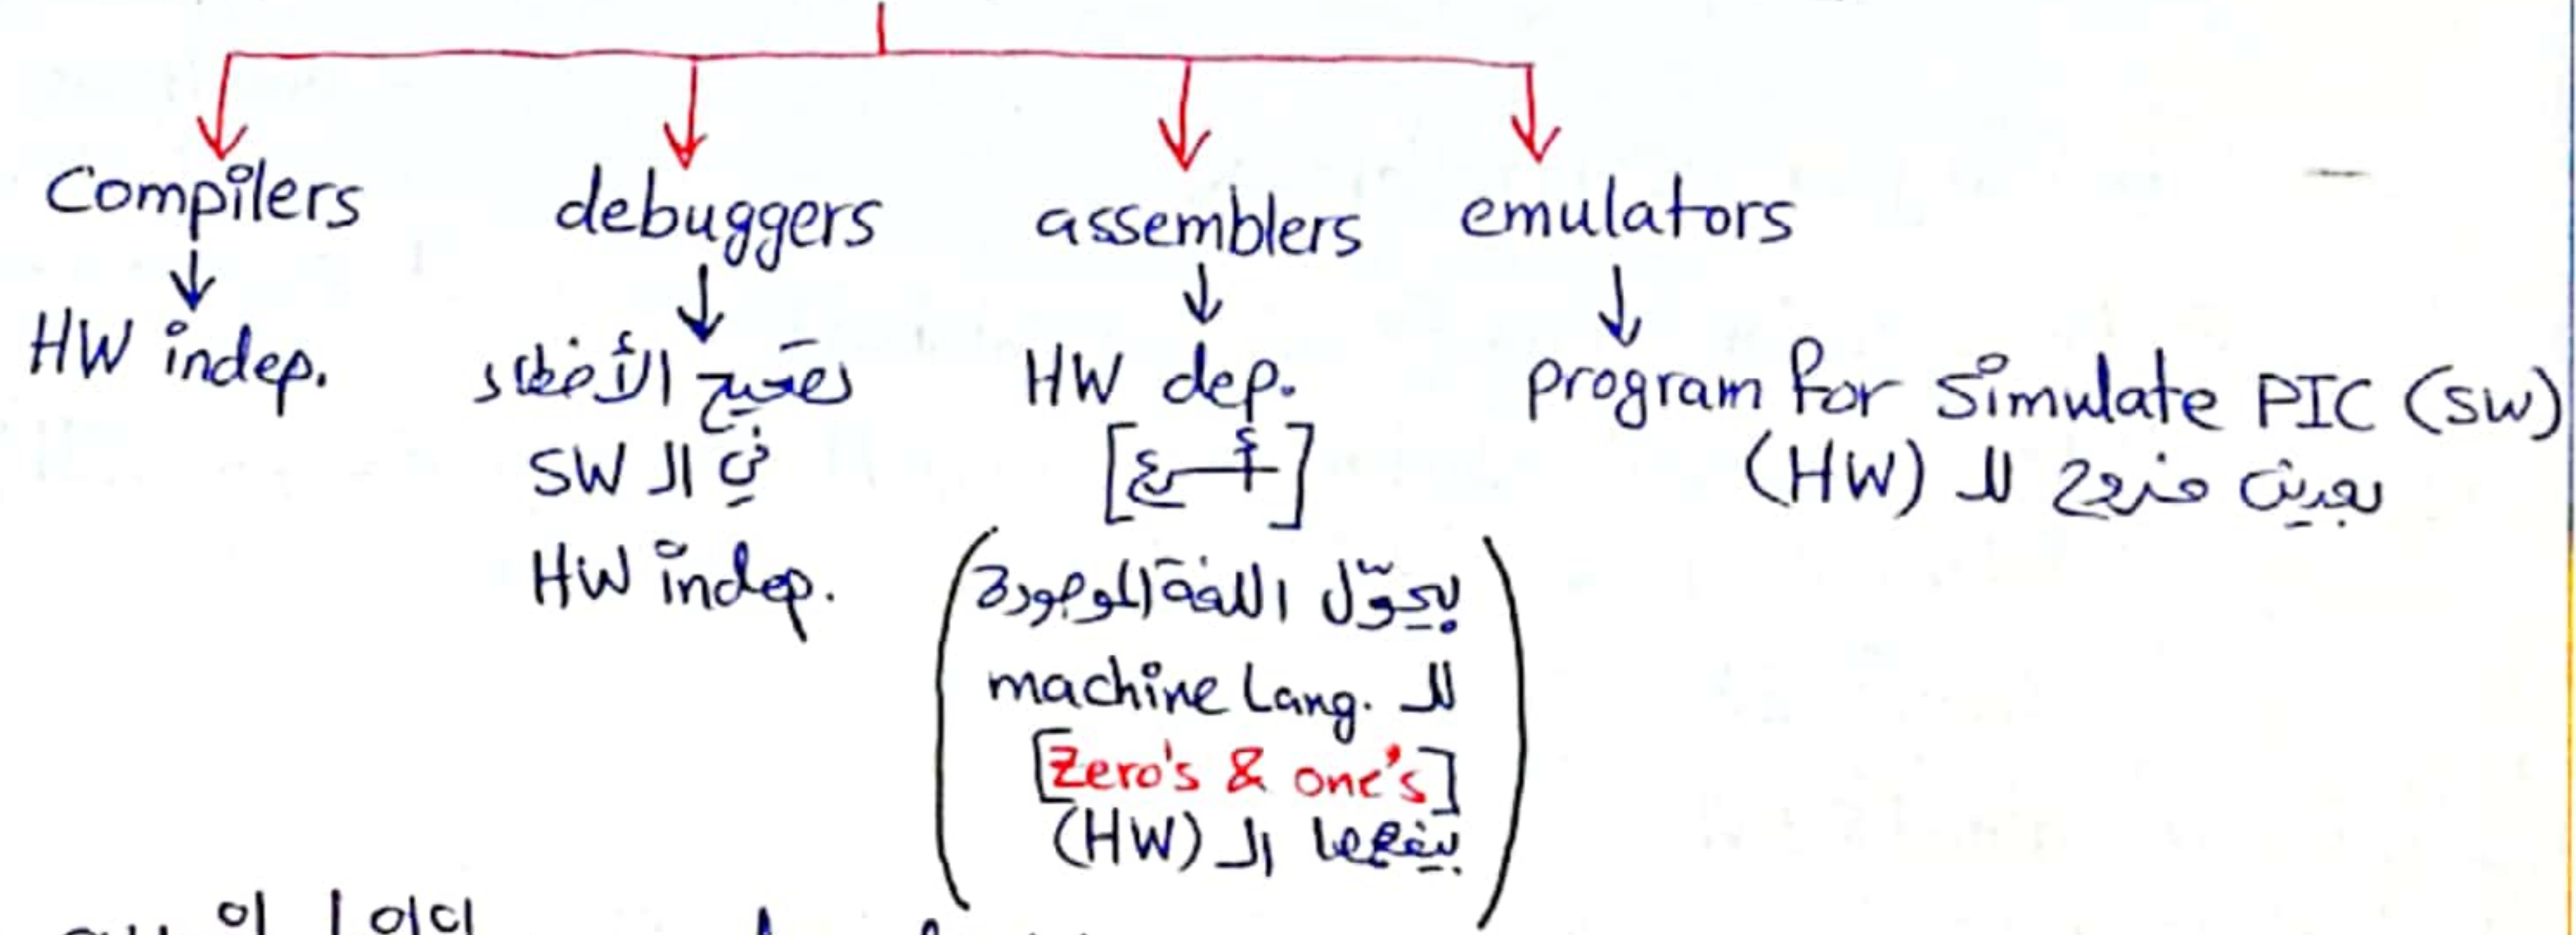 Compilers
HW indep.
debuggers
تصحيح الأخطاء
في الـ SW
HW indep.
assemblers
HW dep.
[أسرع]
(بيحوّل اللغة الموجودة
للـ machine Lang.
[Zero's & one's]
بيفهمها الـ (HW))
emulators
program for Simulate PIC (SW)
خروج للـ (HW)